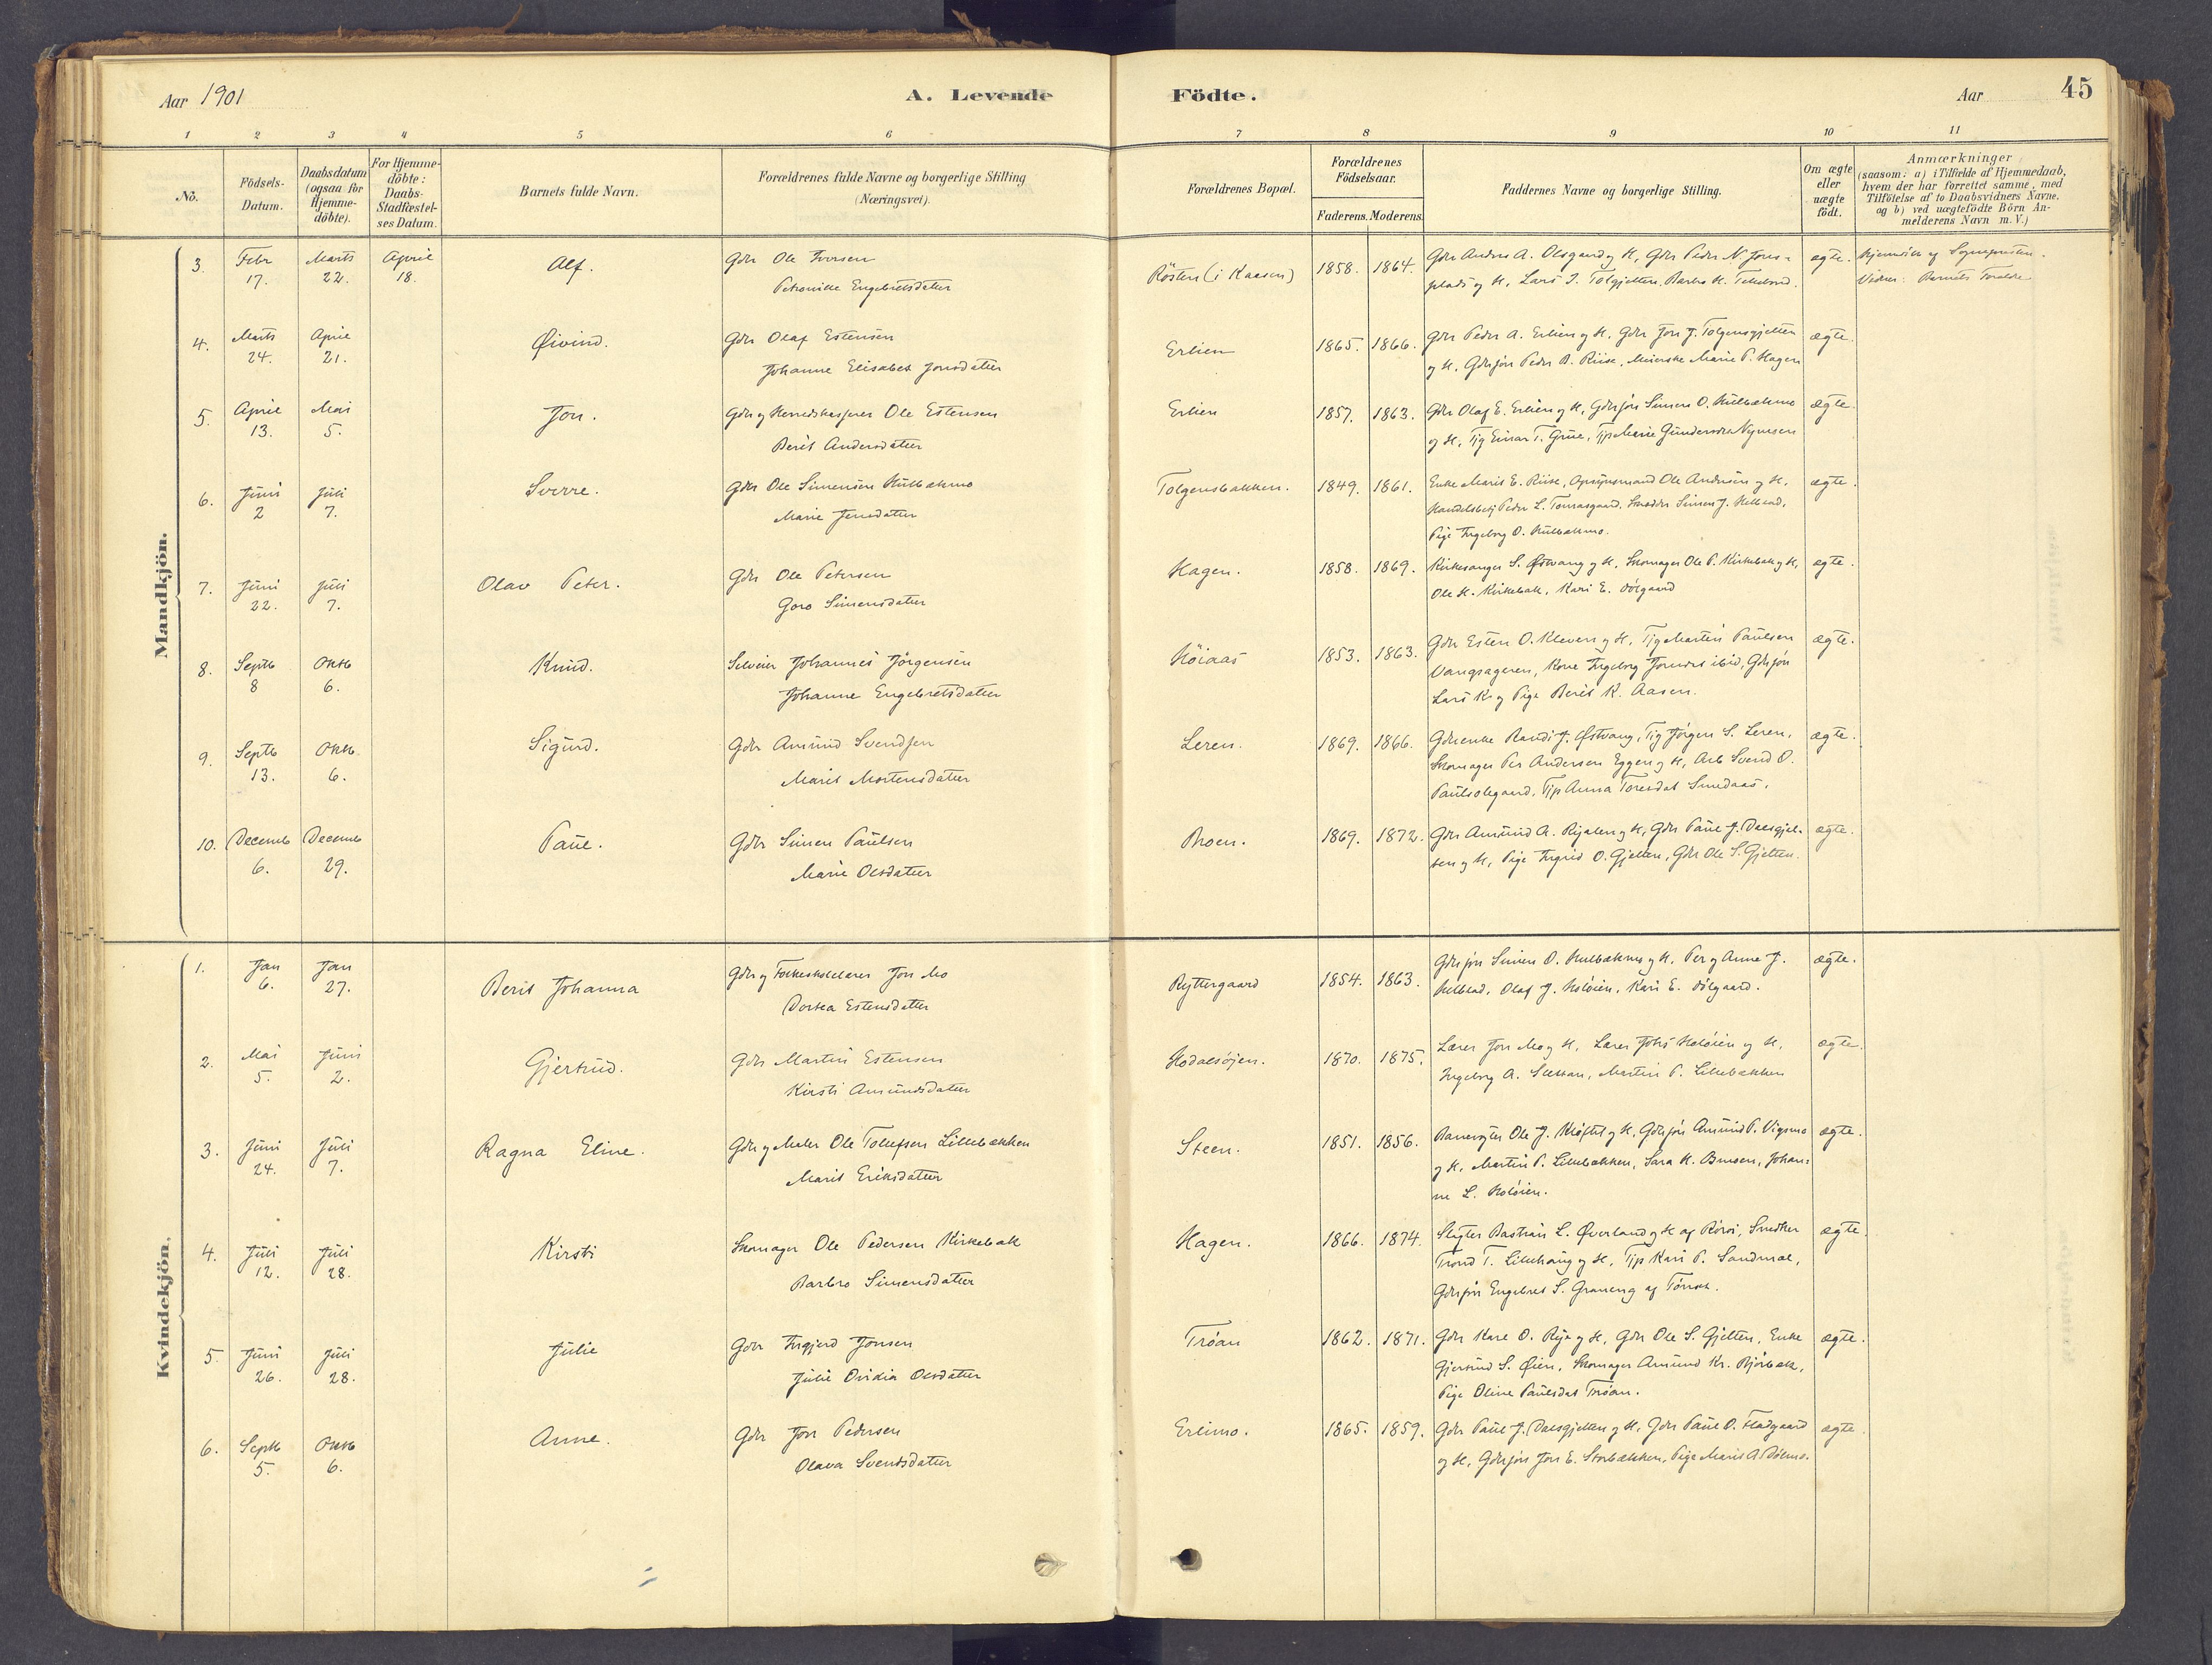 Aar 1901
A. Levende
Födte.
Aar
45
1 2 3 4 5 6 7 8 9 10 11
No.
Födsels-
Datum.
Daabsdatum
(ogsaa for
Hjemme-
döbte).
For Hjemme-
döbte:
Daabs-
Stadfæstel-
ses Datum.
Barnets fulde Navn.
Forældrenes fulde Navne og borgerlige Stilling
(Næringsvei).
Forældrenes Bopæl.
Forældrenes
Födselsaar.
Faderens. Moderens.
Faddernes Navne og borgerlige Stilling.
Om ægte
eller
uægte
födt.
Anmærkninger
(saasom: a) i Tilfælde af Hjemmedaab,
hvem der har forrettet samme, med
Tilföielse af to Daabsvidners Navne,
og b) ved uægtefödte Börn An-
melderens Navn m. V.)
Mandkjön.
3. Febr 17. Marts 22. April 18. Alf.
Gdr Ole Iversen
Petronille Engebretsdatter
Rösten (i Kaasen) 1858. 1864.
Gdr Anders A. Olsgaard og H, Gdr Peder N. Jons-
plads og H, Lars J. Tolgjetten,
ægte.
Vidner: Barnets Forældre
4. Marts 24. April 21. Øivind.
Gdr Olaf Estensen
Johanne Elisabet Jonsdatter
Erlien 1865. 1866.
Gdr Peder A. Erlien og H, Gdr Jon J. Tolgensgjetten
og H, Gdrsøn Peder B. Riise, Meierske Marie P. Hagen
ægte.
5. April 13. Mai 5. Jon.
Gdr og Herredskasserer Ole Estensen
Berit Andersdatter
Erlien 1857. 1863.
Gdr Olaf E. Erlien og H, Gdrsøn Simen O. Kulbækmo
og H, Tjg Einar T. Grue, Tjp Marie Gundersdtr Nymoen
ægte.
6. Juni 2 Juli 7. Sverre.
Gdr Ole Simensen Kulbækmo
Marie Jensdatter
Tolgensbakken. 1849. 1861.
Enke Marit E. Riise, Opsynsmand Ole Andersen og H,
Handelsbetj Peder L. Tomasgaard, Snedker Simen J. Kulblad,
Pige Ingeborg O. Kulbækmo.
ægte.
7. Juni 22. Juli 7. Olav Peter.
Gdr Ole Petersen
Goro Simensdatter
Hagen. 1858. 1869.
Kirkesanger S. Østvang og H, Skomager Ole P. Kirkebak og H,
Ole H. Kirkebak, Kari E. Dölgaard
ægte.
8. Septb 8 Oktb 6. Knud.
Selveier Johannes Jörgensen
Johanne Engebretsdatter
Höiaas 1853. 1863.
Gdr Esten O. Kleven og H, Tjg Martin Paulsen
Vangsageren, Kone Ingeborg Jonsdtr ibid, Gdrsøn
Lars K. og Pige Berit K. Aasen.
ægte.
9. Septb 13. Oktb 6. Sigurd.
Gdr Amund Svendsen
Marit Mortensdatter
Leren. 1869. 1866.
Gdrenke Randi J. Østvang, Tjg Jörgen S. Leren,
Skomager Per Andersen Eggen og H, Arb Svend O.
Paulsolegaard, Tjp Anna Toresdat Smedaas.
ægte.
10. Decemb 6. Decemb 29. Paul.
Gdr Simen Paulsen
Marie Olsdatter
Moen. 1869. 1872.
Gdr Amund A. Rijalen og H, Gdr Paul J. Dalsgjel-
ten og H, Pige Ingrid O. Gjelten, Gdr Ole S. Gjelten.
ægte.
Kvindekjön.
1. Jan 6. Jan 27. Berit Johanna
Gdr og Folkeskolelærer Jon Mo
Dortea Estensdatter
Ryttergaard 1854. 1863.
Gdrsøn Simen O. Kulbækmo og H, Per og Anne J.
Kulblad, Olaf J. Holöien, Kari E. Dölgaard.
ægte.
2. Mai 5. Juni 2. Gjertrud.
Gdr Martin Estensen
Kirsti Amundsdatter
Hodalsöjen. 1870. 1875.
Lærer Jon Mo og H, Lærer Johs Holöien og H,
Ingeborg A. Slettan, Martin P. Lillebækken
ægte.
3. Juni 24. Juli 7. Ragna Eline.
Gdr og Maler Ole Tollefsen Lillebækken
Marit Eriksdatter
Steen. 1851. 1856.
Banevogter Ole J. Kløftet og H, Gdrsøn Amund P. Vigsmo
og H, Martin P. Lillebækken, Sara H. Bmoen, Johan-
ne L. Holöien.
ægte.
4. Juli 12. Juli 28. Kirsti
Skomager Ole Pedersen Kirkebak
Barbro Simensdatter
Hagen. 1866. 1874.
Slagter Bastian L. Øverland og H af Röros, Snedker
Trond T. Lillehaug og H, Tjp Kari P. Sandmæl,
Gdrsøn Engebret S. Graneng af Tönset.
ægte.
5. Juni 26. Juli 28. Julie
Gdr Ingjerd Jonsen
Julie Ovidia Olsdatter
Tröan 1862. 1871.
Gdr Kare O. Rye og H, Gdr Ole S. Gjelten, Enke
Gjertrud S. Øien, Skomager Amund Kr. Bjørbæk,
Pige Oline Paulsdat Tröan.
ægte.
6. Septb 5. Oktb 6. Anne.
Gdr Jon Pedersen
Olava Svendsdatter
Erlimo. 1865. 1859.
Gdr Paul J. Dalsgjelten og H, Gdr Paul O. Fladgaard
og H, Gdrsøn Jon E. Storbækken, Pige Marit A. Dölmo.
ægte.